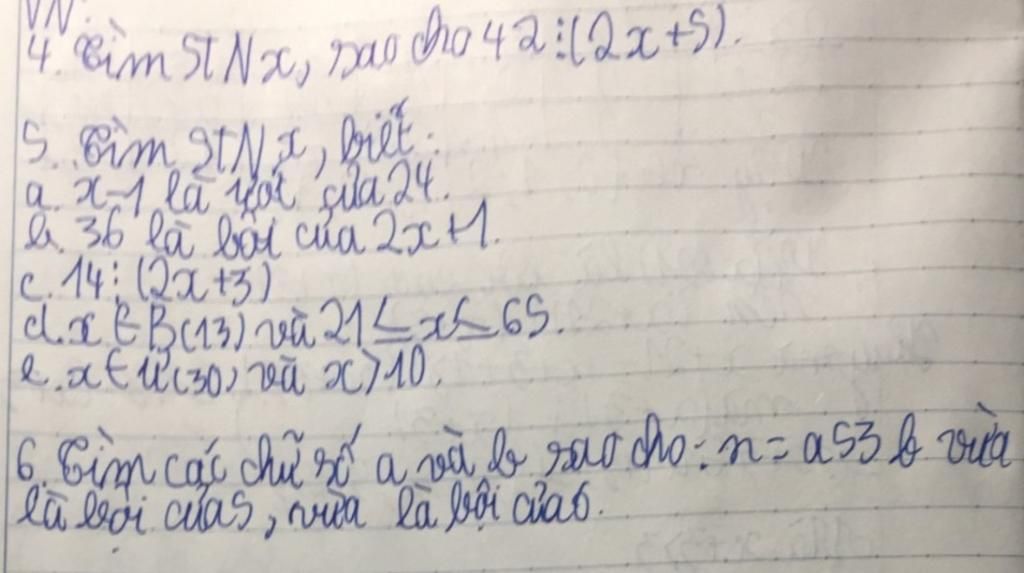 4. Tìm STN x, sao cho 42 ⋮ (2x+5).
5. Tìm STN x, biết:
a. x-1 là ước của 24.
b. 36 là bội của 2x+1.
c. 14 ⋮ (2x+3)
d. x ∈ B(13) và 21 ≤ x ≤ 65.
e. x ∈ Ư(30) và x > 10.
6. Tìm các chữ số a và b sao cho: n = a53b vừa
là bội của 5, vừa là bội của 6.